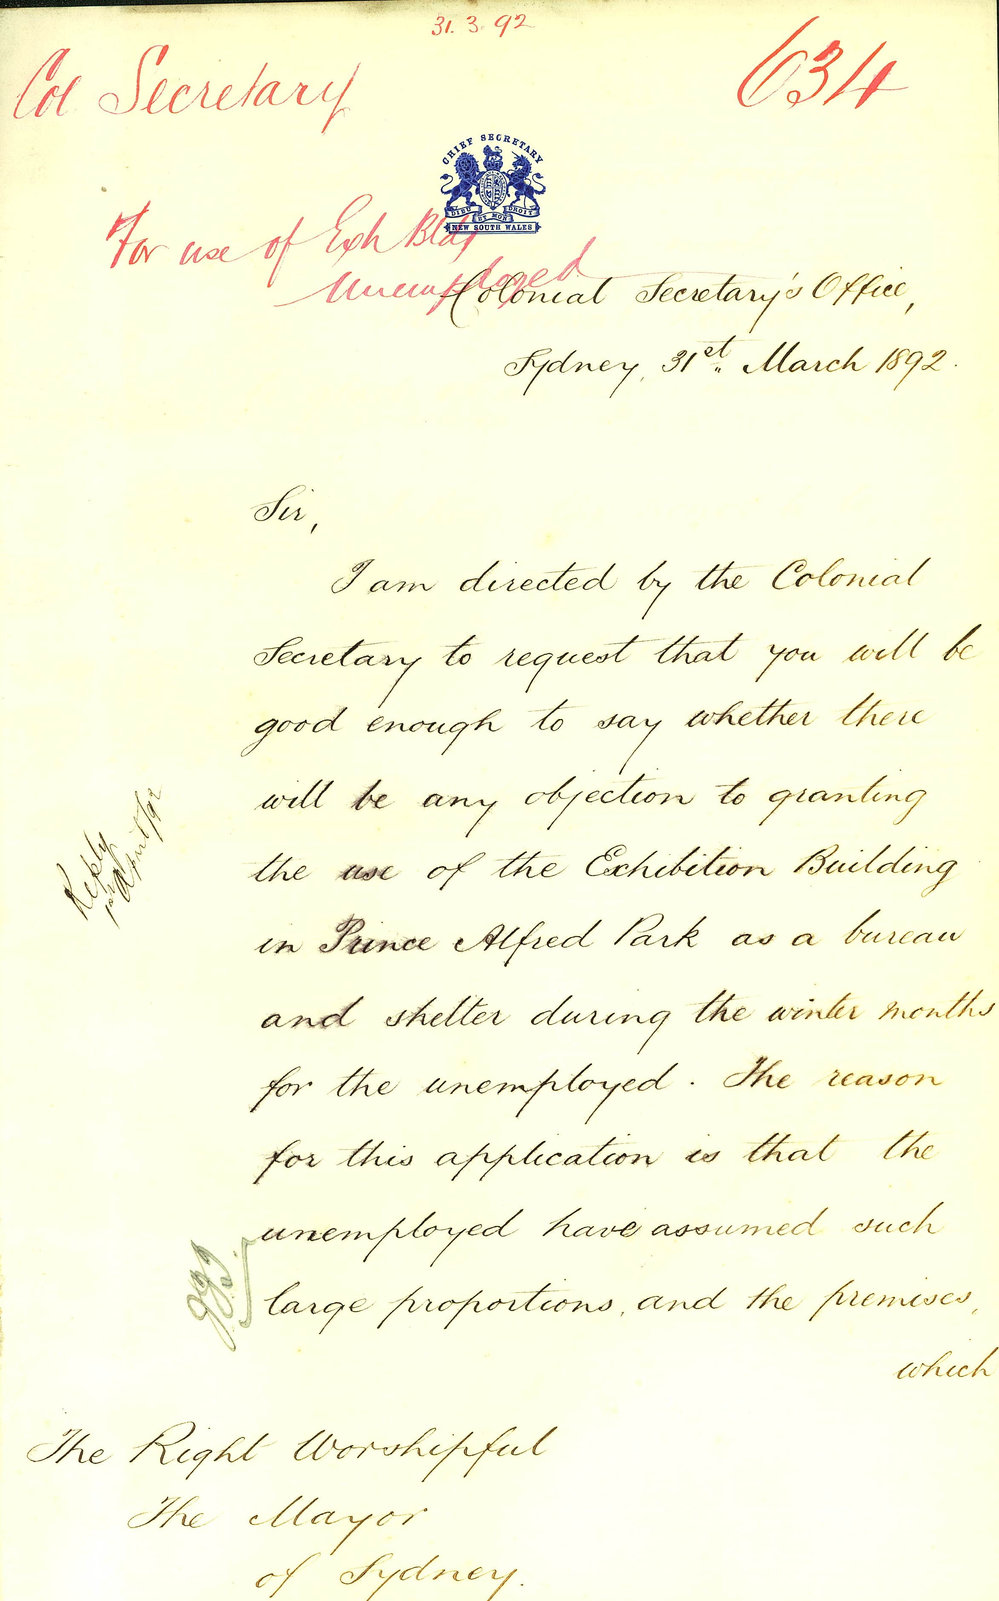 31. 3. 92
Col Secretary
634
CHIEF SECRETARY
DIEU ET MON DROIT
NEW SOUTH WALES
For use of Exh Bldg
Unemployed
Colonial Secretary's Office,
Sydney, 31st. March 1892.
Sir,
I am directed by the Colonial
Secretary to request that you will be
good enough to say whether there
will be any objection to granting
the use of the Exhibition Building
in Prince Alfred Park as a bureau
and shelter during the winter months
for the unemployed. The reason
for this application is that the
unemployed have assumed such
large proportions, and the premises,
which
Reply
1st April/92
The Right Worshipful
The Mayor
of Sydney.